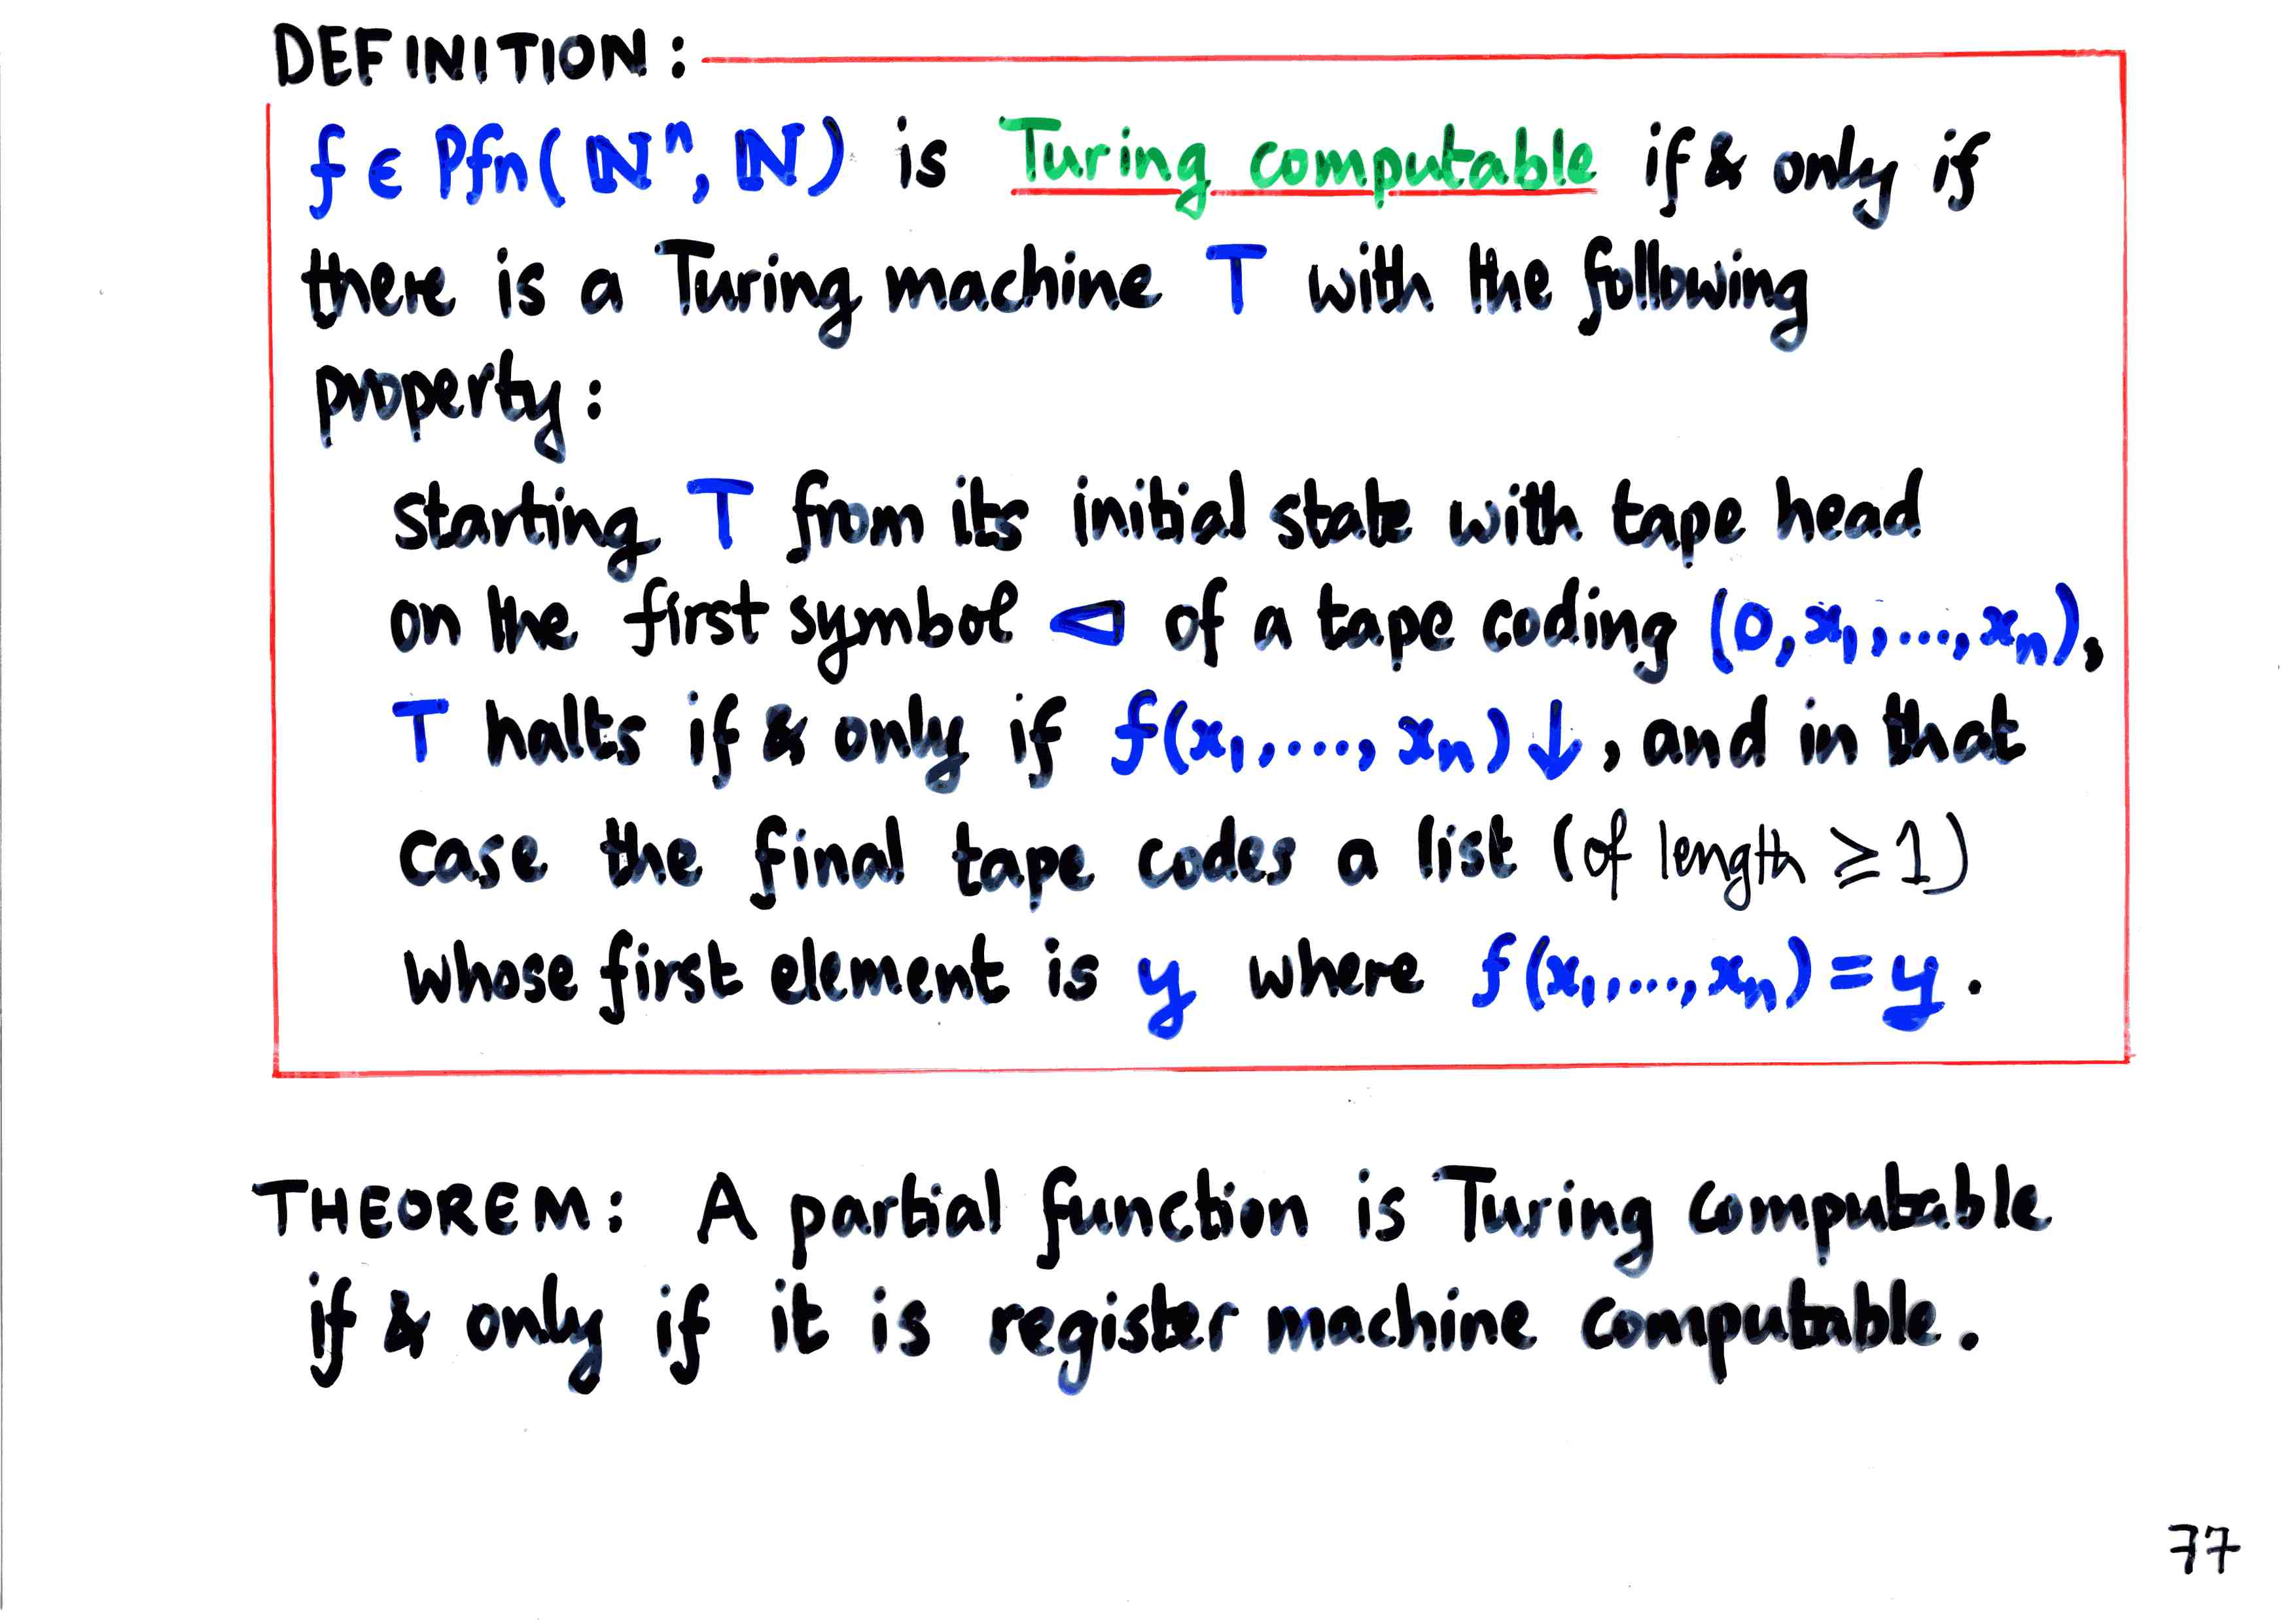 DEFINITION:
f ∈ Pfn(ℕⁿ, ℕ) is Turing computable if & only if
there is a Turing machine T with the following
property:
starting T from its initial state with tape head
on the first symbol ⊲ of a tape coding (0, x₁, ..., xₙ),
T halts if & only if f(x₁, ...., xₙ)↓, and in that
case the final tape codes a list (of length ≥ 1)
whose first element is y where f(x₁, ..., xₙ) = y.
THEOREM: A partial function is Turing computable
if & only if it is register machine computable.
77